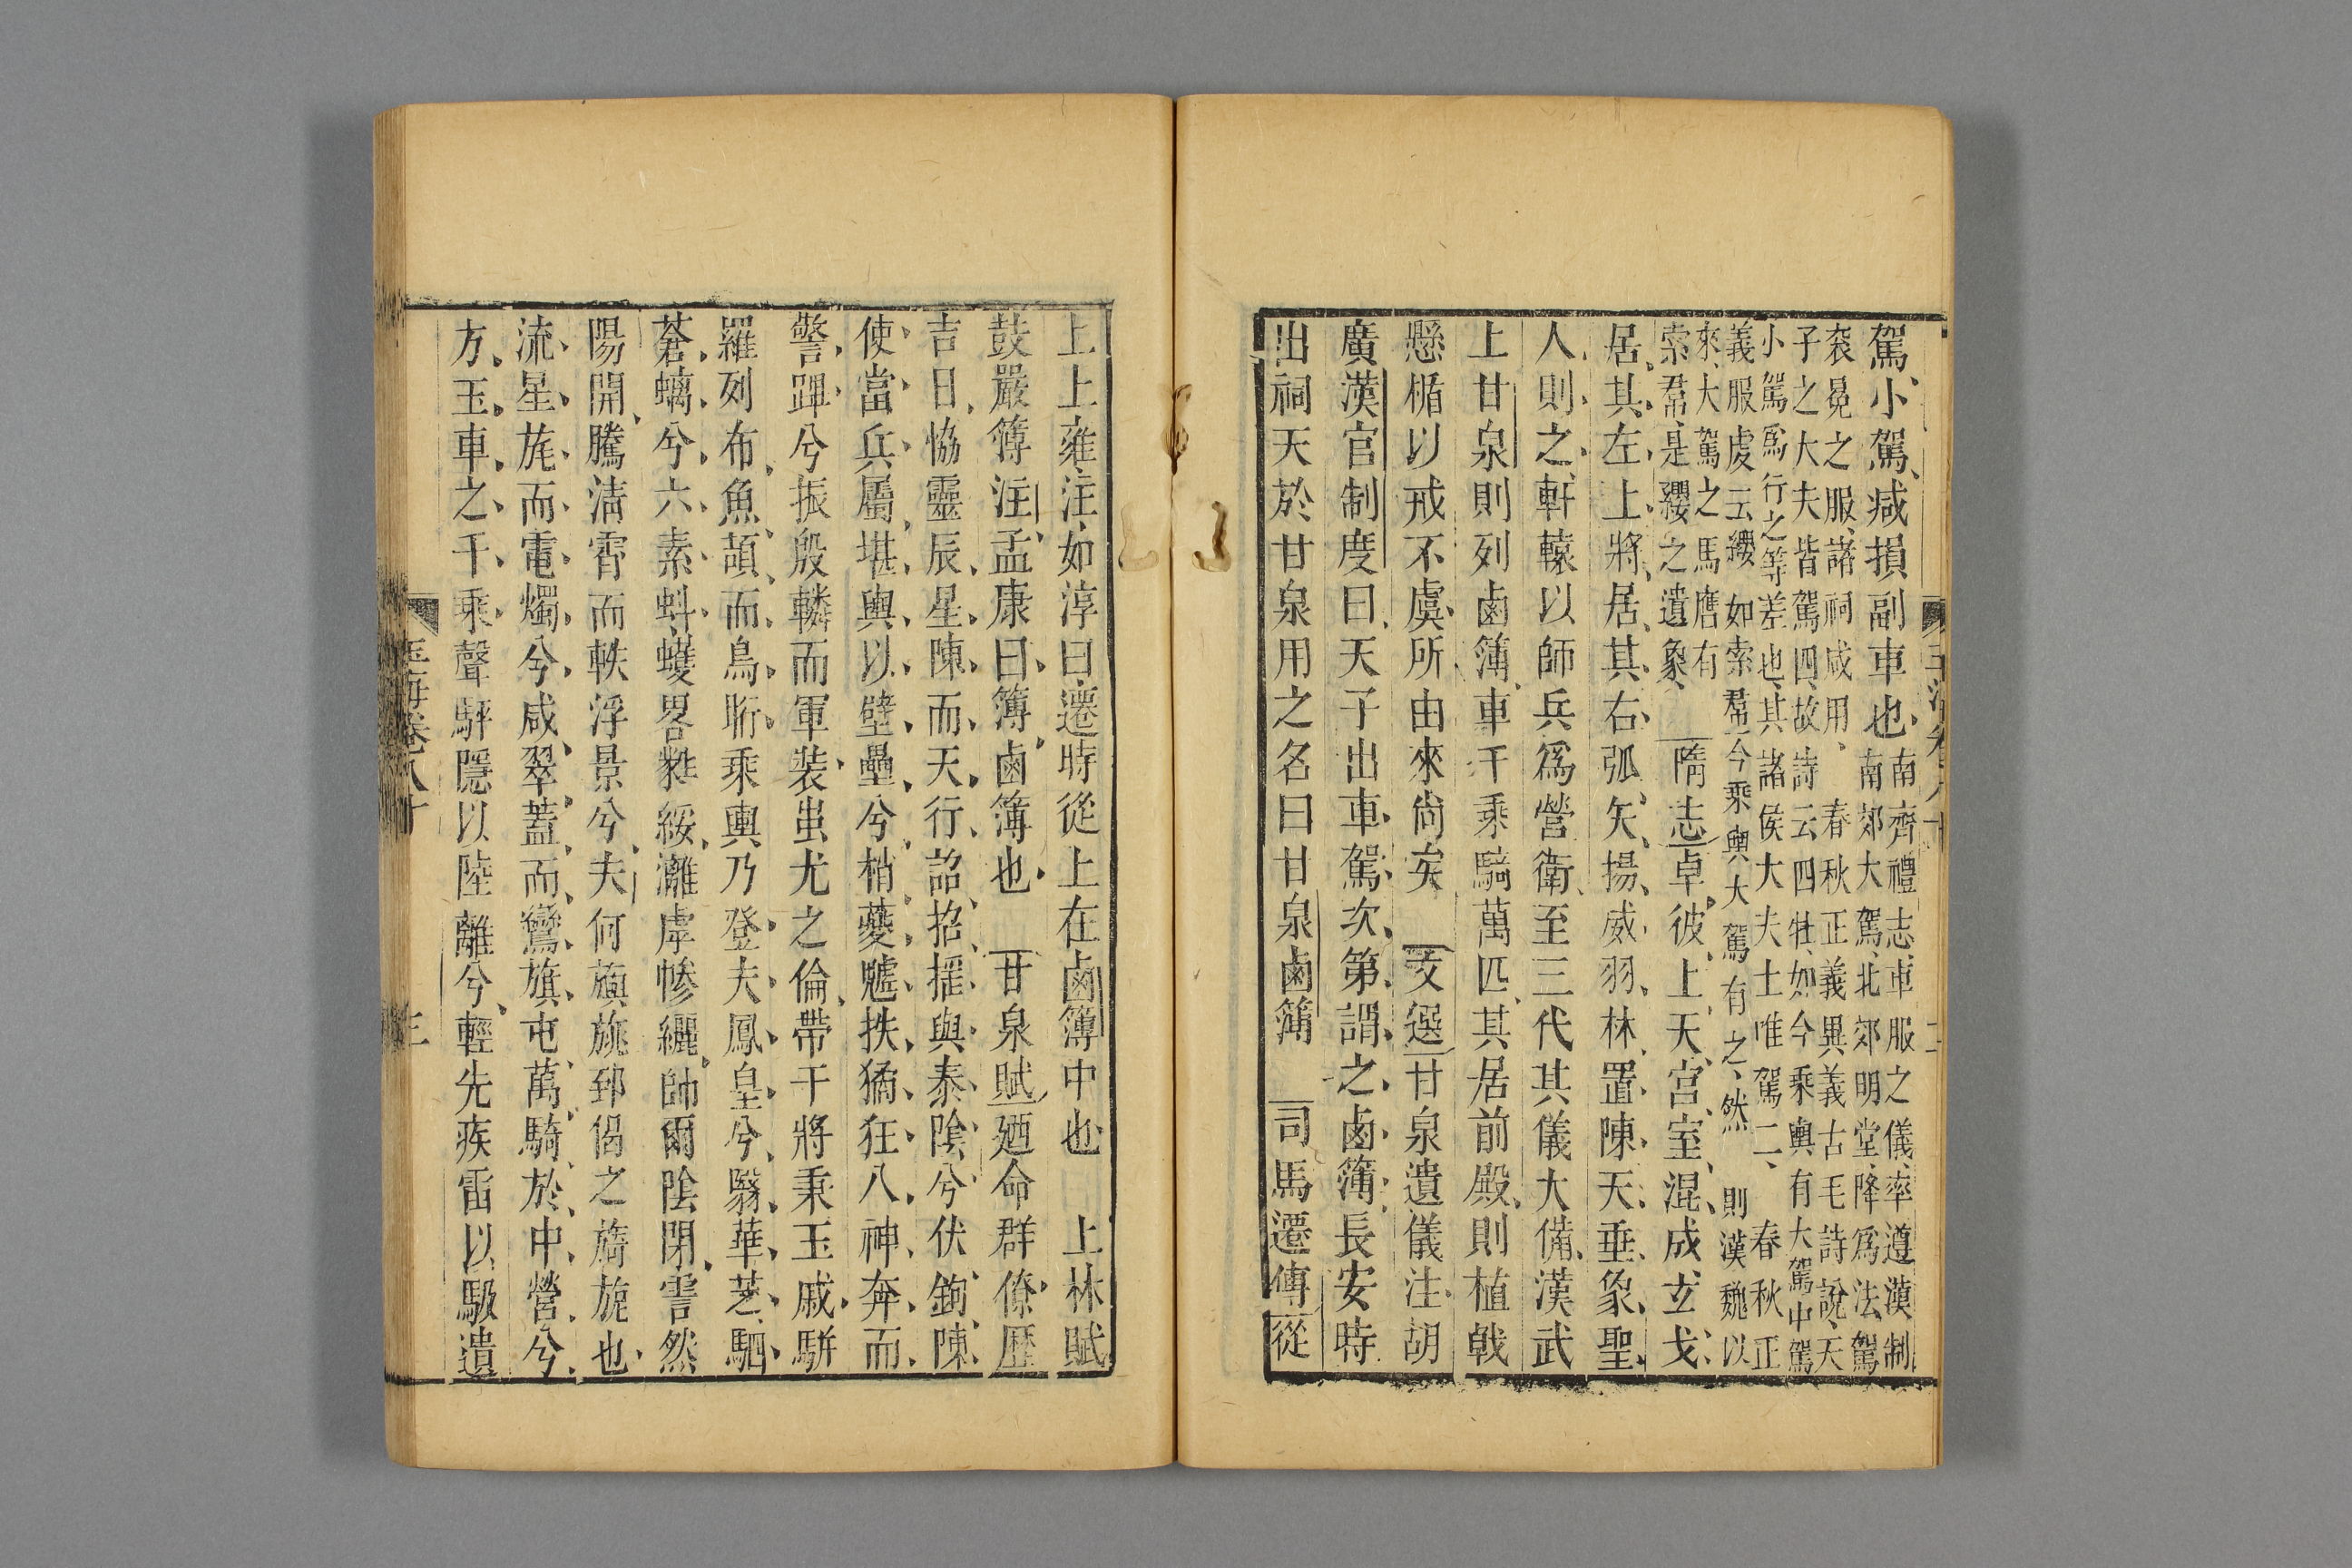 駕小駕减損副車也南齊禮志車服之儀率遵漢制
南郊大駕北郊明堂降爲法駕
衮冕之服諸祠咸用 春秋正義異義古毛詩說天
子之大夫皆駕四故詩云四牡如今乘輿有大駕中駕
小駕爲行之等差也其諸侯大夫士唯駕二 春秋正
義服虔云纓如索帬今乘輿大駕有之然則漢魏以
來大駕之馬膺有
索帬是纓之遺象 隋志卓彼上天宮室混成玄戈
居其左上將居其右弧矢揚威羽林置陳天垂象聖
人則之軒轅以師兵爲營衛至三代其儀大備漢武
上甘泉則列鹵簿車千乘騎萬匹其居前殿則植戟
懸楯以戒不虞所由來尚矣 文選甘泉遺儀注胡
廣漢官制度曰天子出車駕次第謂之鹵簿長安時
出祠天於甘泉用之名曰甘泉鹵簿 司馬遷傳從
上上雍注如淳曰遷時從上在鹵簿中也 上林賦
鼓嚴簿注孟康曰簿鹵簿也 甘泉賦廼命群僚歷
吉日恊靈辰星陳而天行詔招揺與泰陰兮伏鉤陳
使當兵屬堪輿以壁壘兮梢夔魖抶獝狂八神奔而
警蹕兮振殷轔而軍装蚩尤之倫帶干將秉玉戚駢
羅列布魚頡而鳥䀪乘輿乃登夫鳳皇兮翳華芝駟
蒼螭兮六素虯蠖畧蕤綏灕虖幓纚帥爾陰閉霅然
陽開騰清霄而軼浮景兮夫何旟旐郅偈之旖旎也
流星旄而電燭兮咸翠蓋而鸞旗屯萬騎於中營兮
方玉車之千乘聲駍隱以陸離兮輕先疾雷以馺遺
玉海卷八十
三